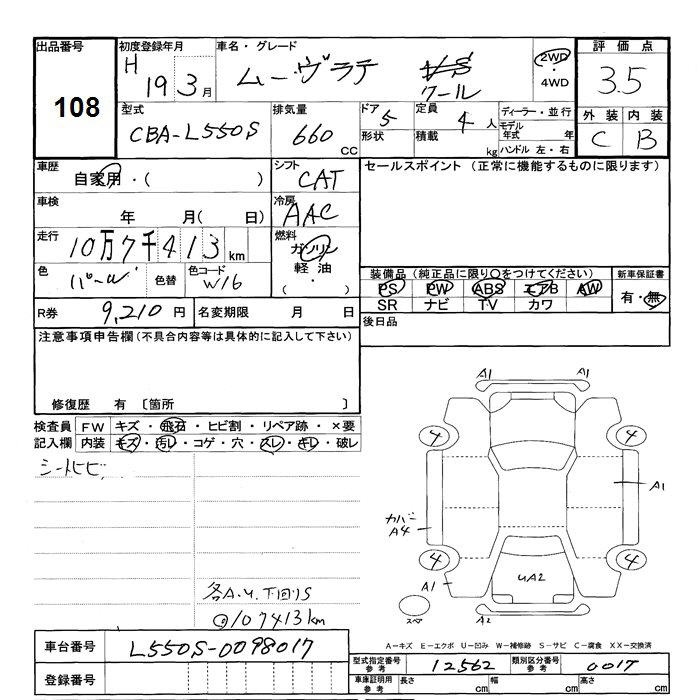 出品番号 108
初度登録年月 H 19 3 月
車名・グレード ムーヴラテ クール
2WD ・ 4WD
評価点 3.5
外装 C 内装 B
型式 CBA-L550S
排気量 660 CC
ドア 5 形状
定員 4 人 積載 kg
ディーラー・並行
モデル年式 年
ハンドル 左・右
車歴 自家用・( )
シフト CAT
セールスポイント (正常に機能するものに限ります)
車検 年 月( 日)
冷房 AAC
走行 10万7千413 km
燃料 ガソリン 軽油 ( ・ )
色 パール 色替 色コード W16
装備品 (純正品に限り○をつけてください)
PS PW ABS エアB AW
SR ナビ TV カワ
新車保証書 有・無
R券 9,210 円 名変期限 月 日
後日品
注意事項申告欄 (不具合内容等は具体的に記入して下さい)
修復歴 有 〔箇所 〕
検査員記入欄
FW キズ・飛石・ヒビ割・リペア跡・×要
内装 キズ・汚レ・コゲ・穴・スレ・キレ・破レ
シートヒビ
各A.U.下回リS
◎107413km
A1 A1
4 4
A1
カバー A4
4 4
A1
UA2
スペア
A2
A-キズ E-エクボ U-凹み W-補修跡 S-サビ C-腐食 XX-交換済
車台番号 L550S-0098017
型式指定番号 参考 12562 類別区分番号 参考 0017
登録番号
車庫証明用 参考 長さ cm 幅 cm 高さ cm